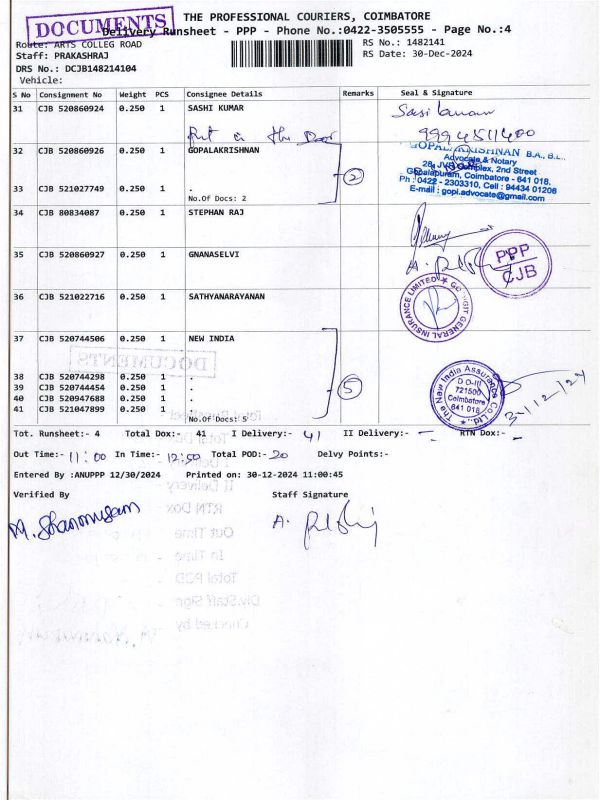 DOCUMENTS
THE PROFESSIONAL COURIERS, COIMBATORE
Delivery Runsheet - PPP - Phone No.:0422-3505555 - Page No.:4
Route: ARTS COLLEG ROAD
RS No.: 1482141
Staff: PRAKASHRAJ
RS Date: 30-Dec-2024
DRS No.: DCJB148214104
Vehicle:
S No Consignment No Weight PCS Consignee Details Remarks Seal & Signature
31 CJB 520860924 0.250 1 SASHI KUMAR
9994511400
32 CJB 520860926 0.250 1 GOPALAKRISHNAN
GOPALAKRISHNAN B.A., B.L.,
Advocate & Notary
28, JVS Complex, 2nd Street
Gopalapuram, Coimbatore - 641 018.
Ph : 0422 - 2303310, Cell : 94434 01208
E-mail : gopi.advocate@gmail.com
33 CJB 521027749 0.250 1 .
No.Of Docs: 2
2
34 CJB 80834087 0.250 1 STEPHAN RAJ
35 CJB 520860927 0.250 1 GNANASELVI
PPP
CJB
36 CJB 521022716 0.250 1 SATHYANARAYANAN
GO DIGIT GENERAL INSURANCE LIMITED
37 CJB 520744506 0.250 1 NEW INDIA
DOCUMENTS
38 CJB 520744298 0.250 1 .
39 CJB 520744454 0.250 1 .
40 CJB 520947688 0.250 1 .
41 CJB 521047899 0.250 1 .
No.Of Docs: 5
5
The New India Assurance Co. Ltd.
D O-III
721500
Coimbatore
641 018
31-12-24
Tot. Runsheet:- 4 Total Dox:- 41 I Delivery:- 41 II Delivery:- - RTN Dox:- -
Out Time:- 11:00 In Time:- 12:50 Total POD:- 20 Delvy Points:-
Entered By :ANUPPP 12/30/2024 Printed on: 30-12-2024 11:00:45
Verified By
Staff Signature
M. Shanmugam
II Delivery
RTN Dox
Out Time
In Time
Total POD
Div.Staff Sign
Checked by